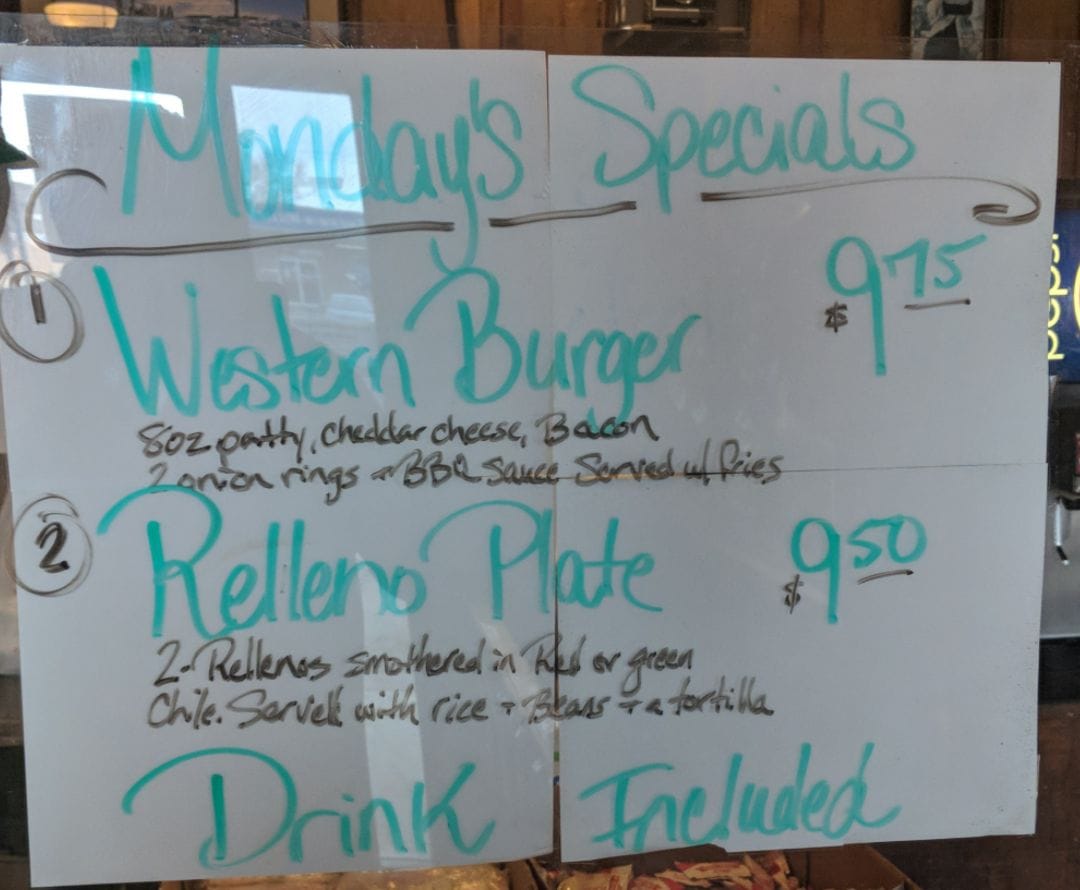 Monday's Specials
1 Western Burger $9.75
8oz patty, cheddar cheese, Bacon
2 onion rings + BBQ sauce Served w/ fries
2 Relleno Plate $9.50
2 - Rellenos smothered in Red or green
Chile. Served with rice + Beans + a tortilla
Drink Included
pepsi